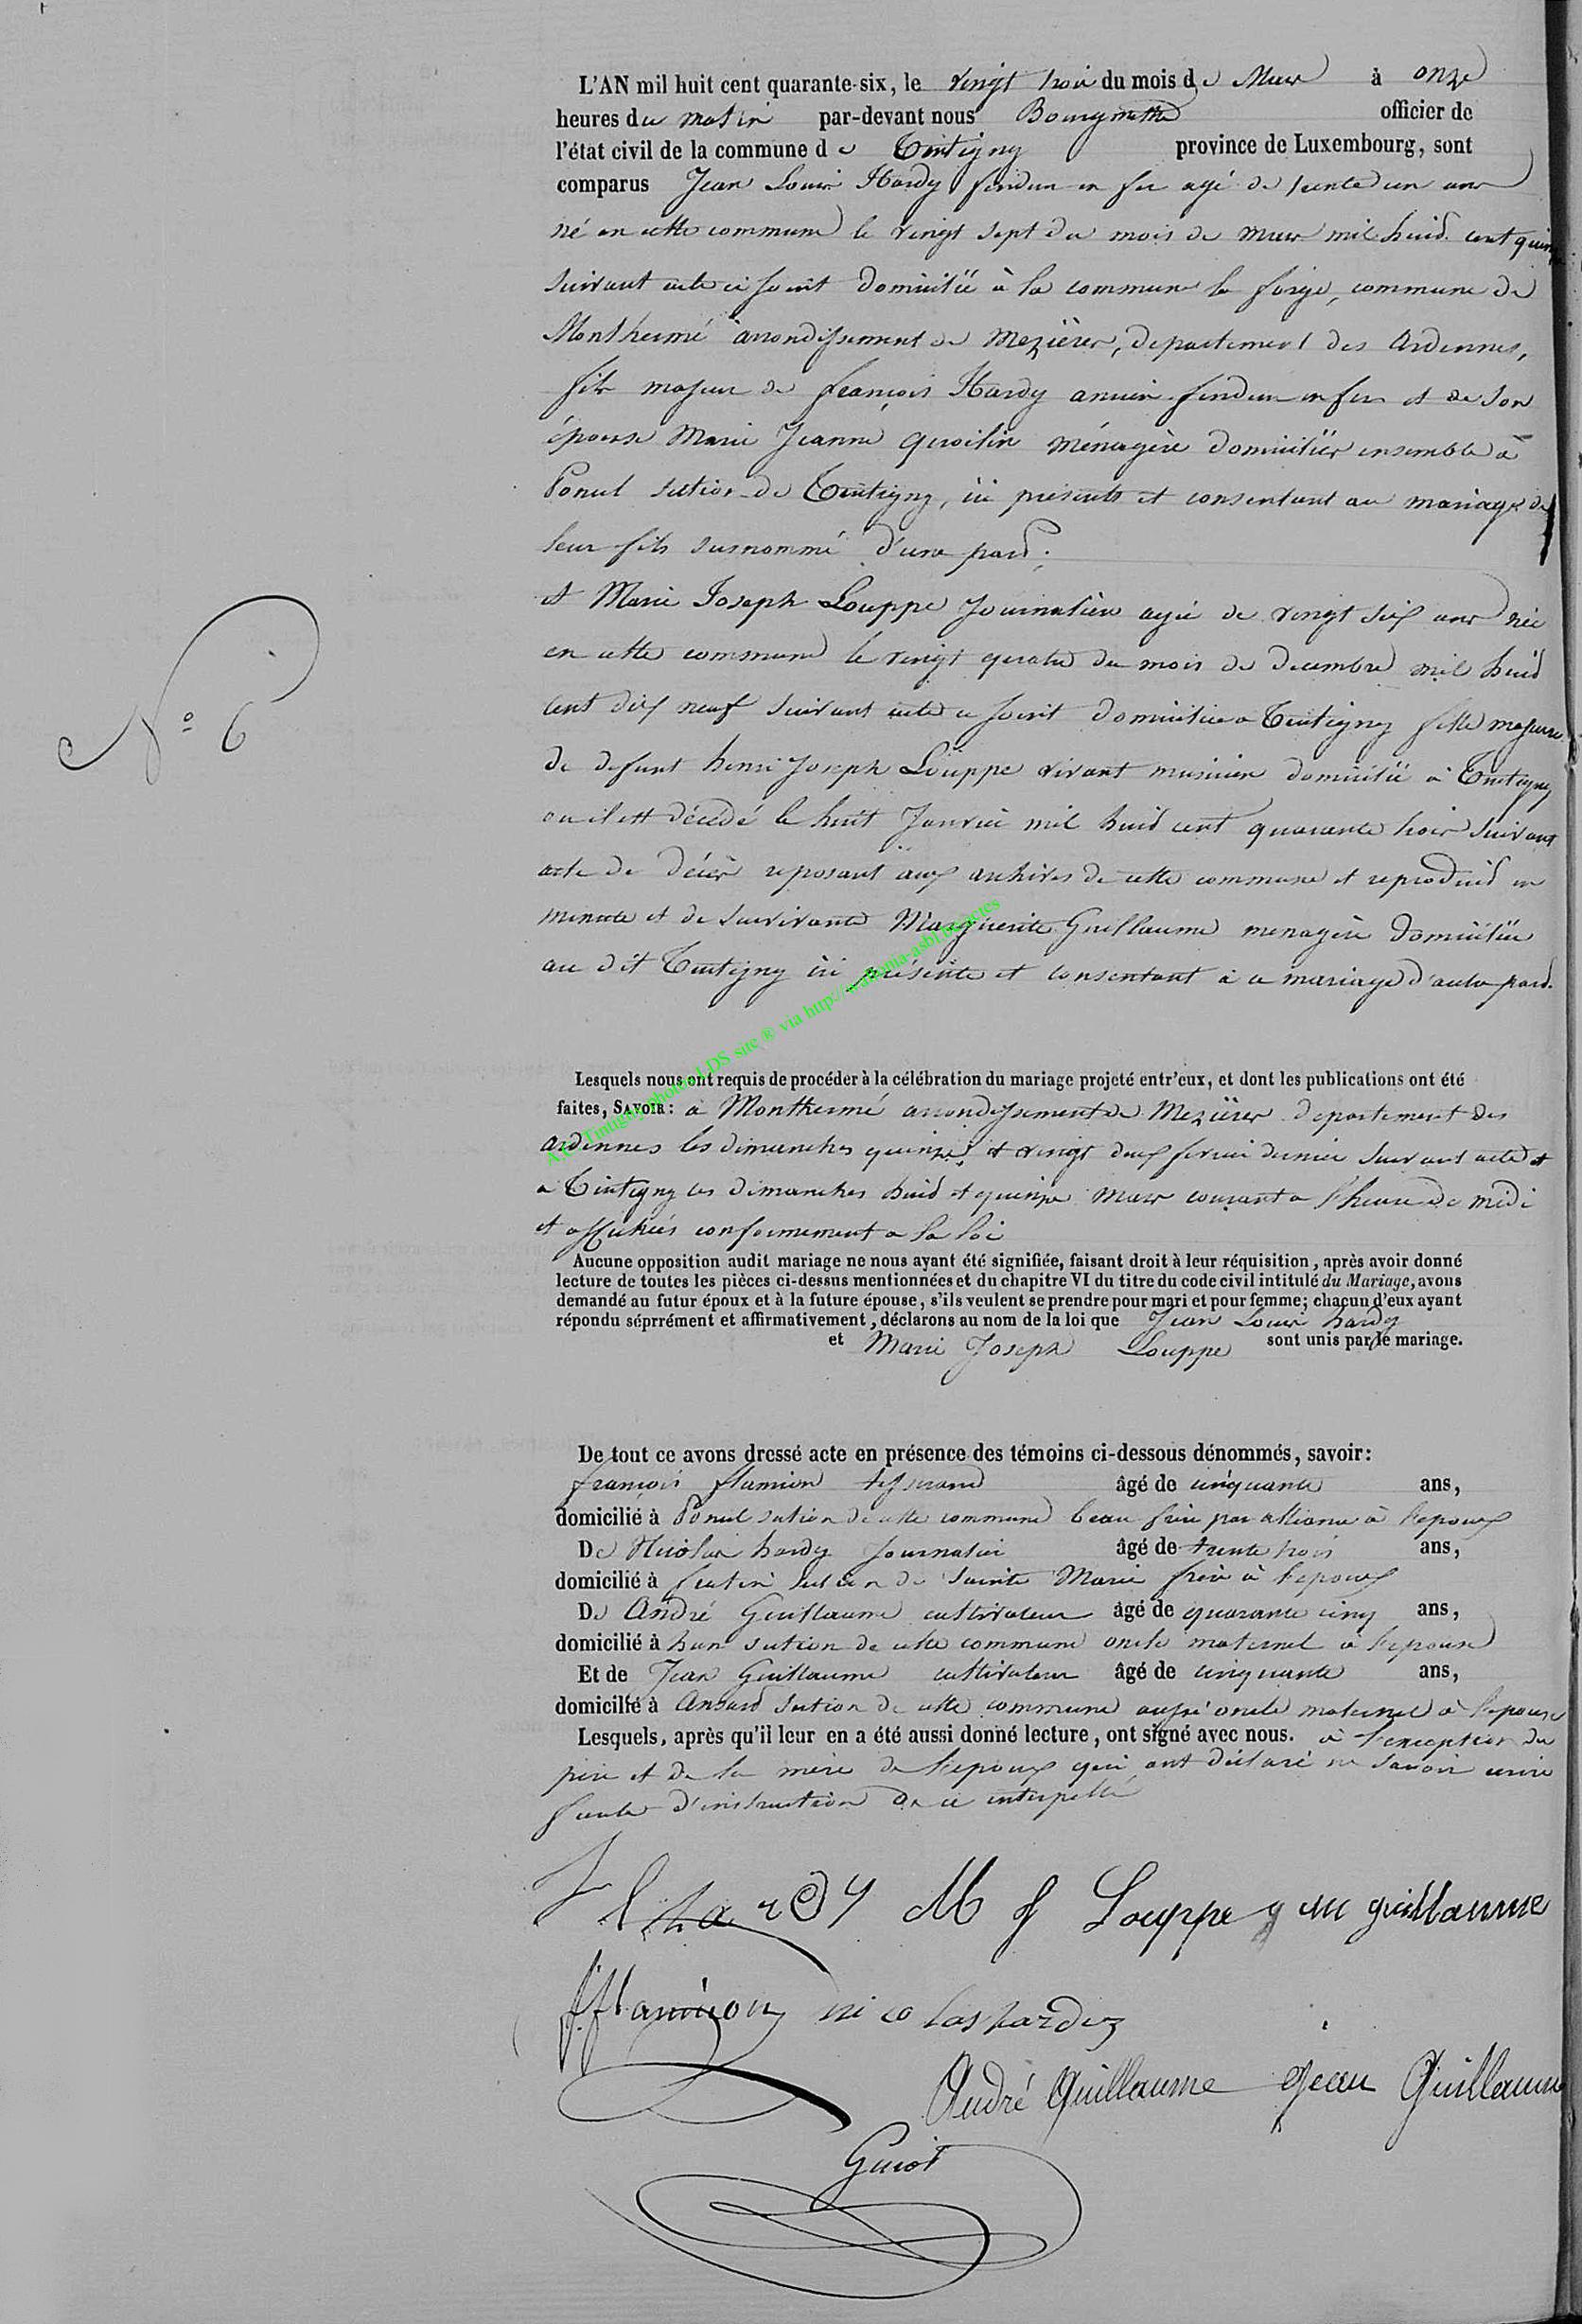 L'AN mil huit cent quarante-six, le vingt trois du mois de Mars à onze
heures du matin par-devant nous Bourgmestre officier de
l'état civil de la commune de Tintigny province de Luxembourg, sont
comparus Jean Louis Hardy fendeur en fer agé de trente un ans
né en cette commune le vingt sept du mois de mars mil huid cent quinze
suivant acte ci joint domicilié à la commune la forge, commune de
Monthermé arrondissement de Mezières, departement des Ardennes,
fils majeur de françois Hardy ancien fendeur en fer et de son
épouse Marie Jeanne quoilin ménagère domiciliés ensemble à
Poncel section de Tintigny, ici présents et consentant au mariage de
leur fils surnommé d'une pard;
et Marie Joseph Louppe Journalière agée de vingt six ans née
en cette commune le vingt quatre du mois de decembre mil huid
cent dix neuf suivant acte ci joint domiciliée a Tintigny fille majeure
de defunt henri Joseph Louppe vivant musicien domicilié à Tintigny
ou il est décédé le huit Janvier mil huid cent quarante trois suivant
acte de décès reposant aux archives de cette commune et reproduid en
minute et de survivante Marguerite Guillaume menagère domiciliée
au dit Tintigny ici présente et consentant à ce mariage d'autre pard.
N° 6
Lesquels nous ont requis de procéder à la célébration du mariage projeté entr'eux, et dont les publications ont été
faites, SAVOIR: à Monthermé arrondissement de Mezières departement des
ardennes les dimanches quinze et vingt deux fevrier dernier suivant acte et
a Tintigny les dimanches huid et quinze Mars courant a l'heure de midi
et affichées conformement a la loi
Aucune opposition audit mariage ne nous ayant été signifiée, faisant droit à leur réquisition, après avoir donné
lecture de toutes les pièces ci-dessus mentionnées et du chapitre VI du titre du code civil intitulé du Mariage, avons
demandé au futur époux et à la future épouse, s'ils veulent se prendre pour mari et pour femme; chacun d'eux ayant
répondu séprrément et affirmativement, déclarons au nom de la loi que Jean Louis hardy
et Marie Joseph Louppe sont unis par le mariage.
De tout ce avons dressé acte en présence des témoins ci-dessous dénommés, savoir:
françois flamion tisserand âgé de cinquante ans,
domicilié à Poncel section de cette commune beau frère par alliance à l'epoux
De Nicolas hardy Journalier âgé de trente trois ans,
domicilié à section de Sainte Marie frère à l'epoux
De André Guillaume cultivateur âgé de quarante cinq ans,
domicilié à han section de cette commune oncle maternel à l'epouse
Et de Jean Guillaume cultivateur âgé de cinquante ans,
domicilié à Ansard section de cette commune aussi oncle maternel à l'epouse
Lesquels, après qu'il leur en a été aussi donné lecture, ont signé avec nous. à l'exception du
père et de la mère de l'epoux qui ont déclaré ne savoir ecrire
faute d'instruction de ce interpellé
J l hardy M J Louppe guillaume
f. flamion nicolas hardy
André Guillaume Jean Guillaume
Guiot
A.C. Tintigny photos LDS site ® via http://wallonia-asbl.be/actes